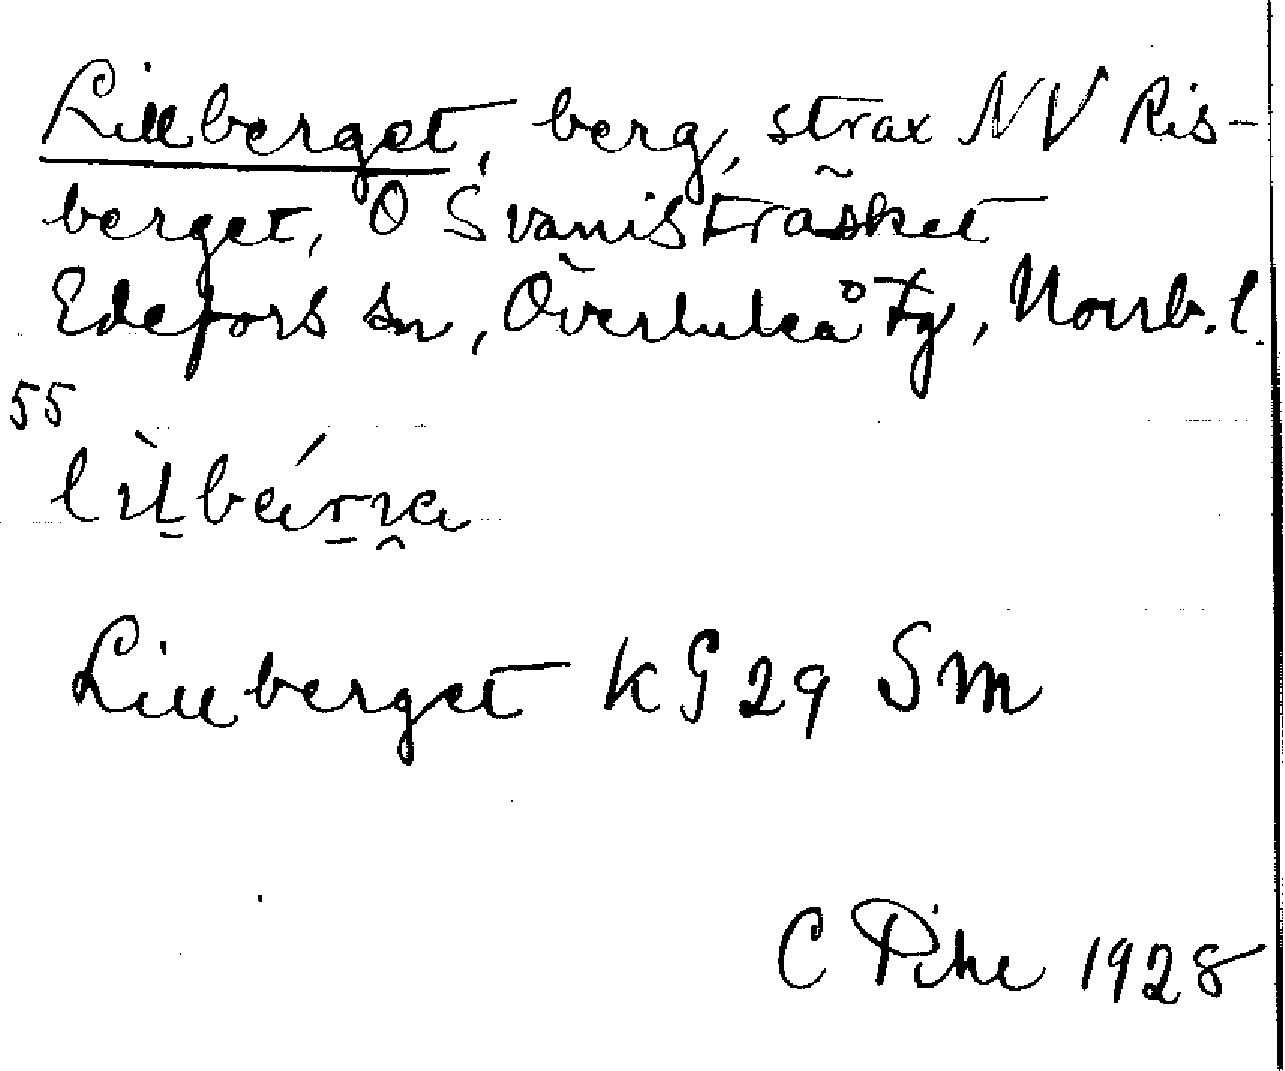 Lillberget, berg, strax NV Ris-
berget, O Svanisträsket
Edefors sn, Överluleå tg, Norrb. l.
55
Lillberget KG 29 Sm
C Pihl 1928